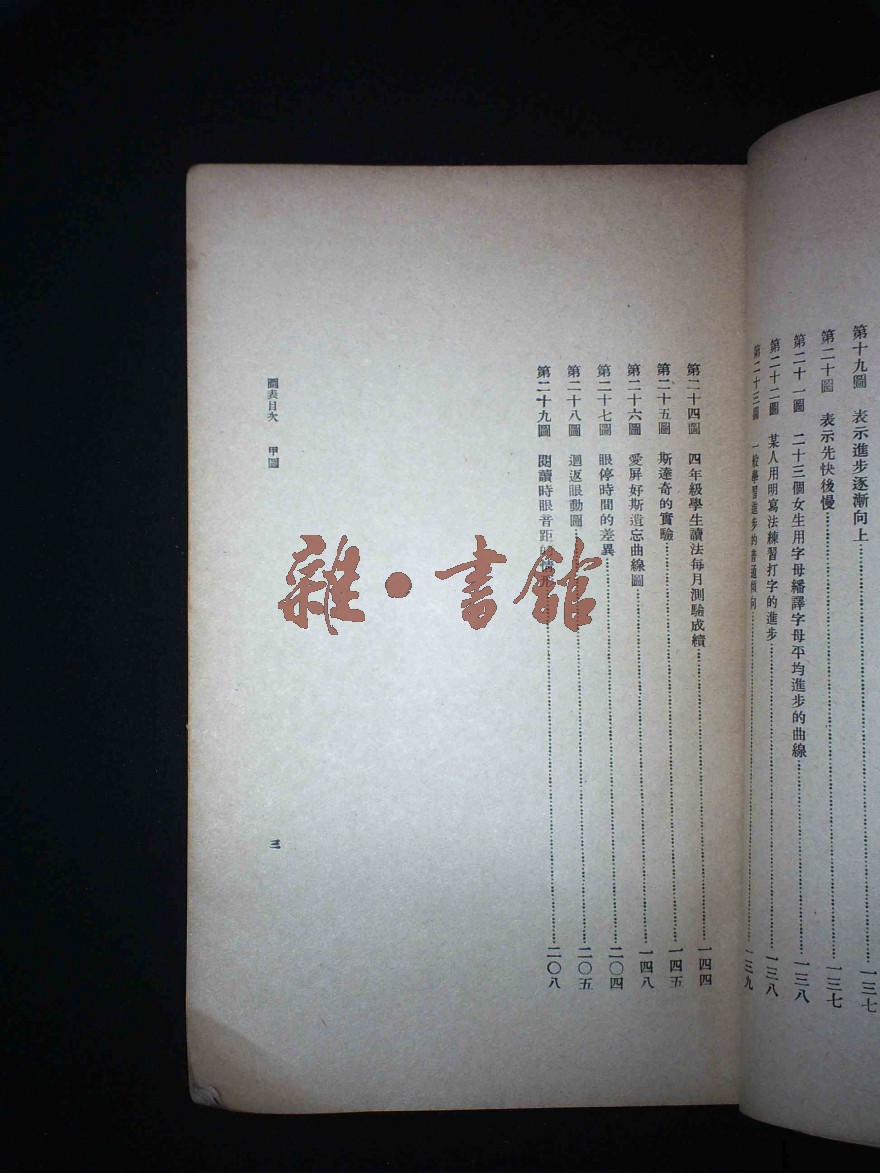 第十九圖 表示進步逐漸向上……一三七
第二十圖 表示先快後慢……一三七
第二十一圖 二十三個女生用字母繙譯字母平均進步的曲線……一三八
第二十二圖 某人用明寫法練習打字的進步……一三八
第二十三圖 一般學習進步的普通傾向……一三九
第二十四圖 四年級學生讀法每月測驗成績……一四四
第二十五圖 斯達奇的實驗……一四五
第二十六圖 愛屏好斯遺忘曲線圖……一四八
第二十七圖 眼停時間的差異……二〇四
第二十八圖 迴返眼動圖……二〇五
第二十九圖 閱讀時眼音距的情形……二〇八
圖表目次 甲圖
三
雜·書館